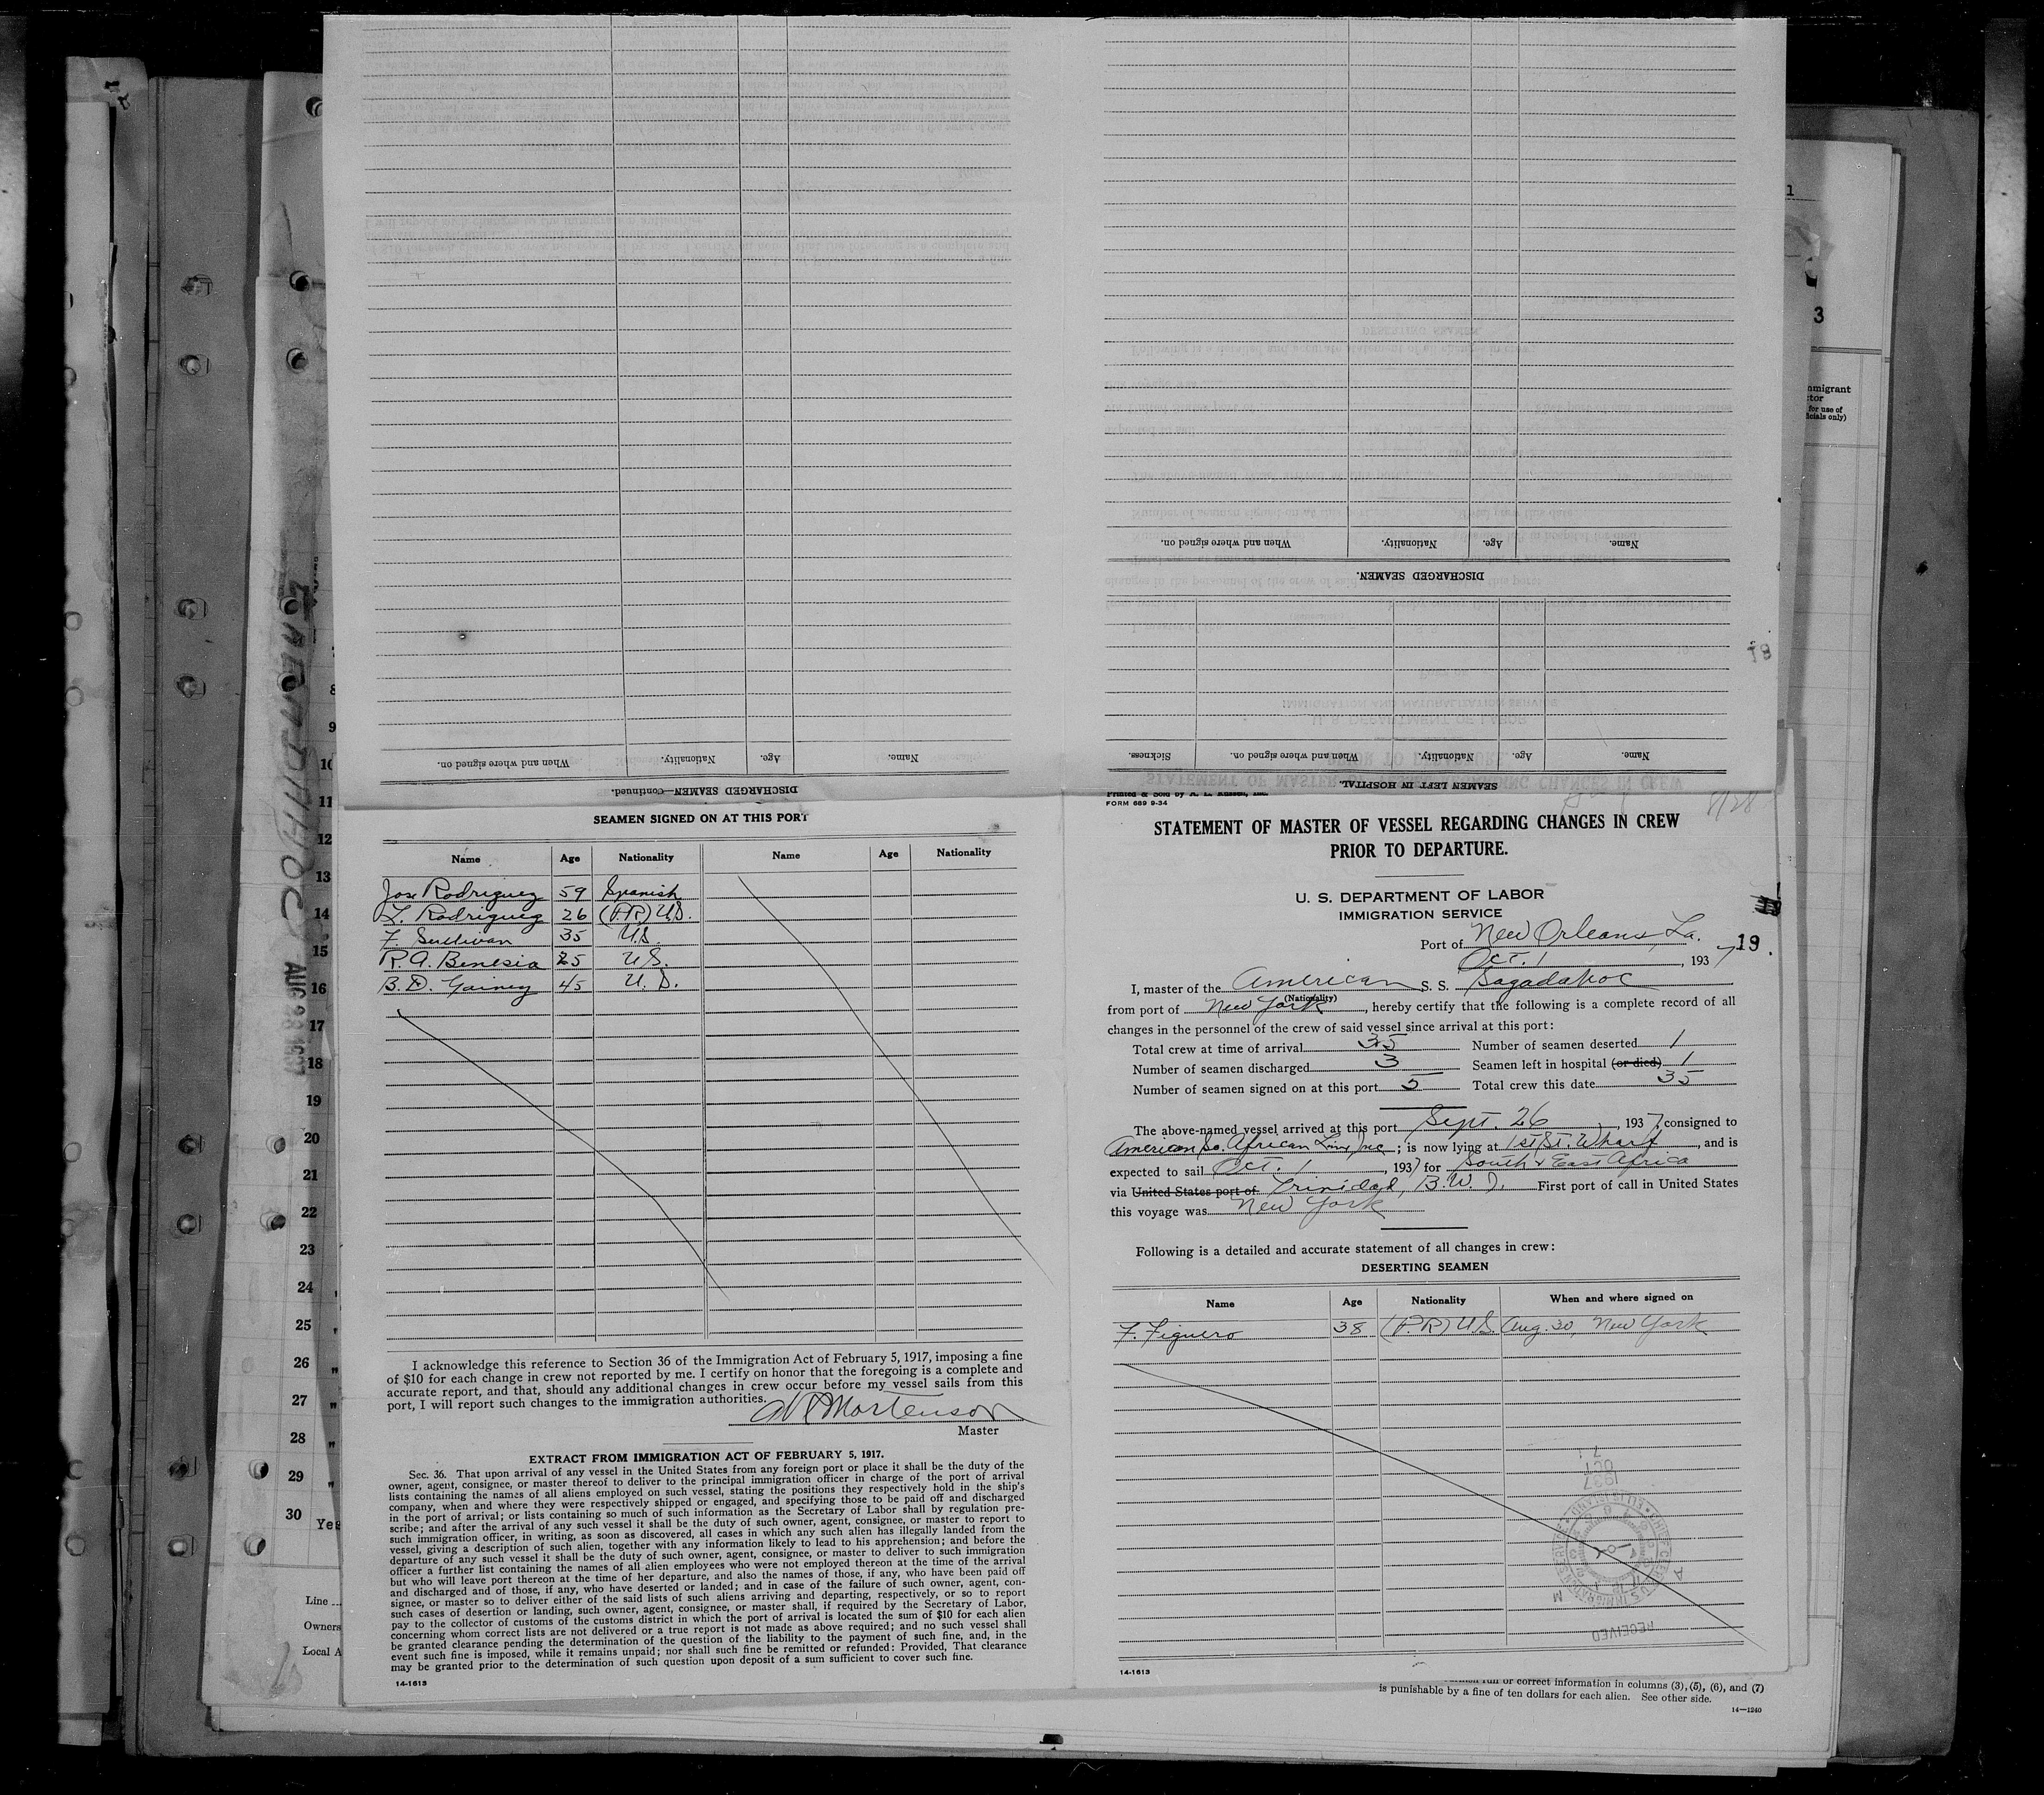 DISCHARGED SEAMEN.
Name. Age. Nationality. When and where signed on.
SEAMEN LEFT IN HOSPITAL.
Name. Age. Nationality. When and where signed on. Sickness.
DISCHARGED SEAMEN—Continued.
Name. Age. Nationality. When and where signed on.
SEAMEN SIGNED ON AT THIS PORT
Name Age Nationality Name Age Nationality
Jose Rodriguez 59 Spanish
L. Rodriguez 26 (P.R) U.S.
F. Sullivan 35 U.S.
R. A. Benesia 25 U.S.
B. D. Gainey 45 U.S.
I acknowledge this reference to Section 36 of the Immigration Act of February 5, 1917, imposing a fine
of $10 for each change in crew not reported by me. I certify on honor that the foregoing is a complete and
accurate report, and that, should any additional changes in crew occur before my vessel sails from this
port, I will report such changes to the immigration authorities.
Mortenson
Master
EXTRACT FROM IMMIGRATION ACT OF FEBRUARY 5, 1917.
Sec. 36. That upon arrival of any vessel in the United States from any foreign port or place it shall be the duty of the
owner, agent, consignee, or master thereof to deliver to the principal immigration officer in charge of the port of arrival
lists containing the names of all aliens employed on such vessel, stating the positions they respectively hold in the ship's
company, when and where they were respectively shipped or engaged, and specifying those to be paid off and discharged
in the port of arrival; or lists containing so much of such information as the Secretary of Labor shall by regulation pre-
scribe; and after the arrival of any such vessel it shall be the duty of such owner, agent, consignee, or master to report to
such immigration officer, in writing, as soon as discovered, all cases in which any such alien has illegally landed from the
vessel, giving a description of such alien, together with any information likely to lead to his apprehension; and before the
departure of any such vessel it shall be the duty of such owner, agent, consignee, or master to deliver to such immigration
officer a further list containing the names of all alien employees who were not employed thereon at the time of the arrival
but who will leave port thereon at the time of her departure, and also the names of those, if any, who have been paid off
and discharged and of those, if any, who have deserted or landed; and in case of the failure of such owner, agent, con-
signee, or master so to deliver either of the said lists of such aliens arriving and departing, respectively, or so to report
such cases of desertion or landing, such owner, agent, consignee, or master shall, if required by the Secretary of Labor,
pay to the collector of customs of the customs district in which the port of arrival is located the sum of $10 for each alien
concerning whom correct lists are not delivered or a true report is not made as above required; and no such vessel shall
be granted clearance pending the determination of the question of the liability to the payment of such fine, and, in the
event such fine is imposed, while it remains unpaid; nor shall such fine be remitted or refunded: Provided, That clearance
may be granted prior to the determination of such question upon deposit of a sum sufficient to cover such fine.
14-1613
FORM 689 9-34
8/28
STATEMENT OF MASTER OF VESSEL REGARDING CHANGES IN CREW
PRIOR TO DEPARTURE.
U. S. DEPARTMENT OF LABOR
IMMIGRATION SERVICE
Port of New Orleans, La.
Oct. 1, 1937
19
I, master of the American S. S. Sagadahoc
(Nationality)
from port of New York, hereby certify that the following is a complete record of all
changes in the personnel of the crew of said vessel since arrival at this port:
Total crew at time of arrival 35 Number of seamen deserted 1
Number of seamen discharged 3 Seamen left in hospital (or died) 1
Number of seamen signed on at this port 5 Total crew this date 35
The above-named vessel arrived at this port Sept. 26, 1937, consigned to
American So. African Line, Inc; is now lying at 1st St. Wharf, and is
expected to sail Oct. 1, 1937 for South & East Africa
via United States port of Trinidad, B.W.I. First port of call in United States
this voyage was New York
Following is a detailed and accurate statement of all changes in crew:
DESERTING SEAMEN
Name Age Nationality When and where signed on
F. Figuero 38 (P.R) U.S. Aug. 30, New York
1937
OCT
RECEIVED
14-1613
AUG 28 1937
8
9
10
11
12
13
14
15
16
17
18
19
20
21
22
23
24
25
26
27
28
29
30
Line
Owners
Local A
3
nmigrant
ctor
for use of
ficials only)
or correct information in columns (3), (5), (6), and (7)
is punishable by a fine of ten dollars for each alien. See other side.
14—1240